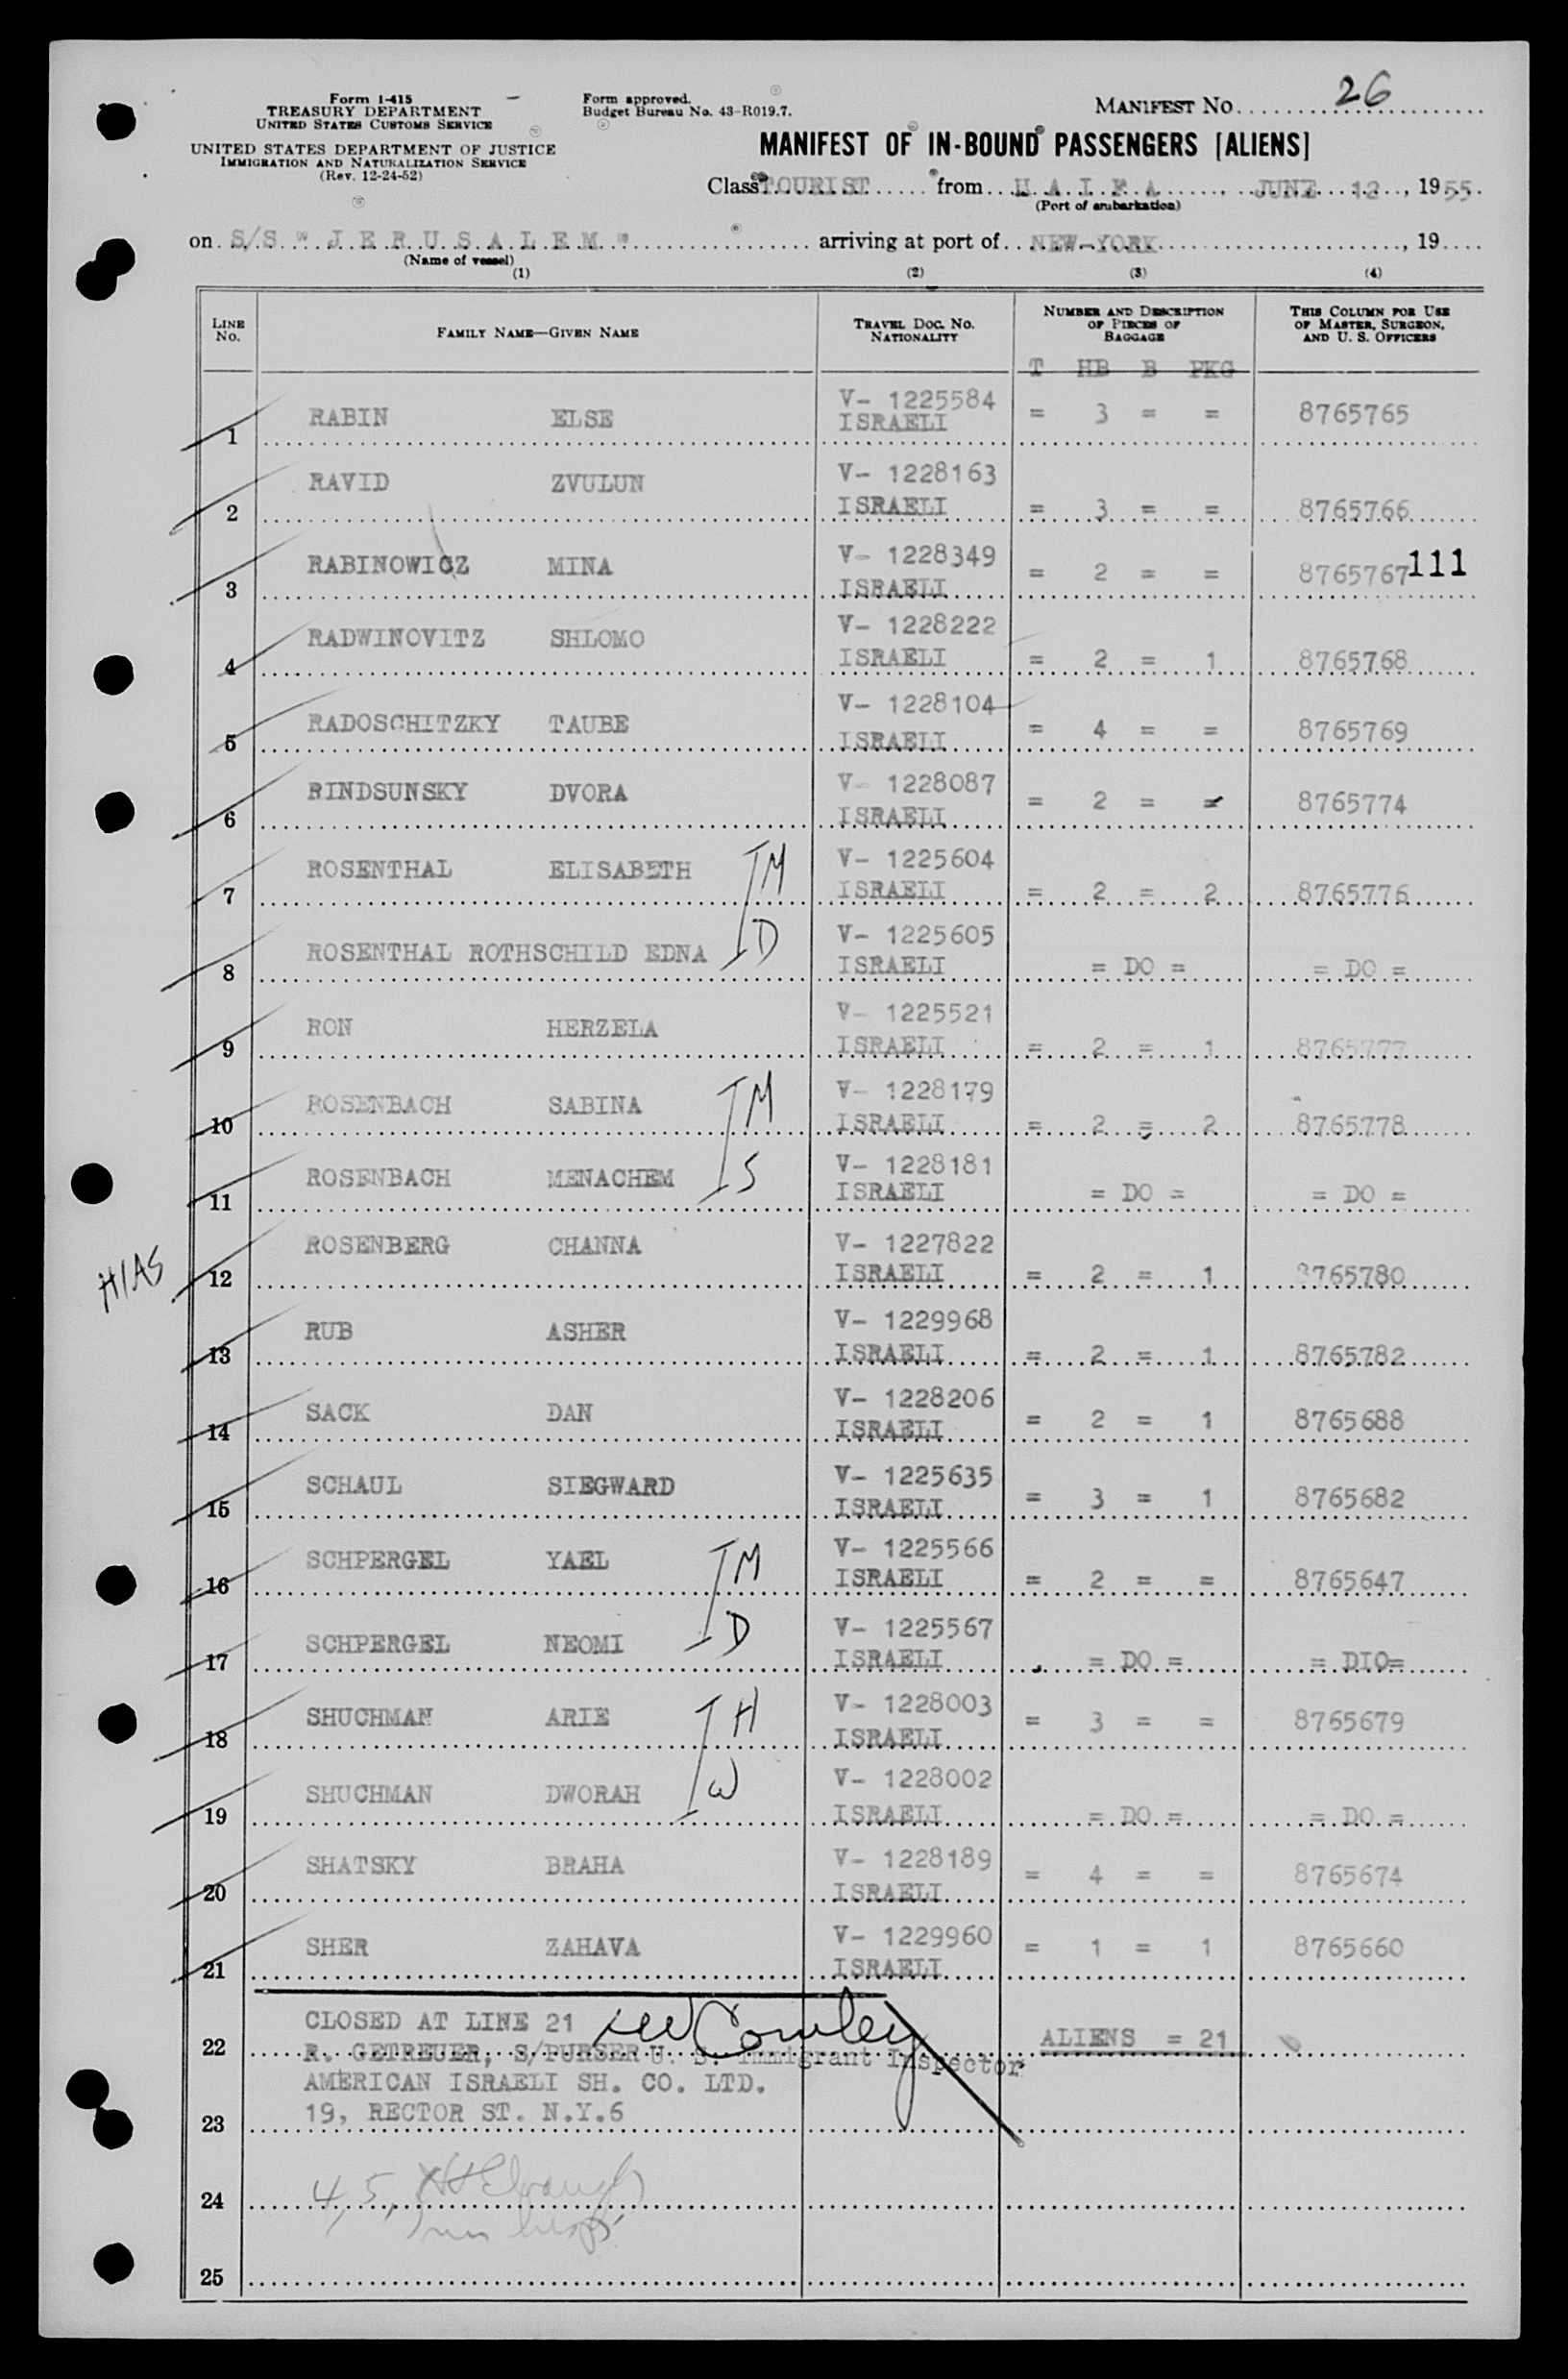 Form I-415
TREASURY DEPARTMENT
UNITED STATES CUSTOMS SERVICE
UNITED STATES DEPARTMENT OF JUSTICE
IMMIGRATION AND NATURALIZATION SERVICE
(Rev. 12-24-52)
Form approved.
Budget Bureau No. 43-R019.7.
MANIFEST NO. 26
MANIFEST OF IN-BOUND PASSENGERS [ALIENS]
Class TOURIST from H A I F A, JUNE 12, 1955
(Port of embarkation)
on S/S " J E R U S A L E M " arriving at port of NEW-YORK, 19
(Name of vessel)
(1) (2) (3) (4)
LINE NO. FAMILY NAME—GIVEN NAME TRAVEL DOC. NO. NATIONALITY NUMBER AND DESCRIPTION OF PIECES OF BAGGAGE THIS COLUMN FOR USE OF MASTER, SURGEON, AND U. S. OFFICERS
T HB B PKG
1 RABIN ELSE V- 1225584 ISRAELI = 3 = = 8765765
2 RAVID ZVULUN V- 1228163 ISRAELI = 3 = = 8765766
3 RABINOWICZ MINA V- 1228349 ISRAELI = 2 = = 8765767 111
4 RADWINOVITZ SHLOMO V- 1228222 ISRAELI = 2 = 1 8765768
5 RADOSCHITZKY TAUBE V- 1228104 ISRAELI = 4 = = 8765769
6 RINDSUNSKY DVORA V- 1228087 ISRAELI = 2 = = 8765774
7 ROSENTHAL ELISABETH M V- 1225604 ISRAELI = 2 = 2 8765776
8 ROSENTHAL ROTHSCHILD EDNA D V- 1225605 ISRAELI = DO = = DO =
9 RON HERZELA V- 1225521 ISRAELI = 2 = 1 8765777
10 ROSENBACH SABINA M V- 1228179 ISRAELI = 2 = 2 8765778
11 ROSENBACH MENACHEM S V- 1228181 ISRAELI = DO = = DO =
HIAS 12 ROSENBERG CHANNA V- 1227822 ISRAELI = 2 = 1 8765780
13 RUB ASHER V- 1229968 ISRAELI = 2 = 1 8765782
14 SACK DAN V- 1228206 ISRAELI = 2 = 1 8765688
15 SCHAUL SIEGWARD V- 1225635 ISRAELI = 3 = 1 8765682
16 SCHPERGEL YAEL M V- 1225566 ISRAELI = 2 = = 8765647
17 SCHPERGEL NEOMI D V- 1225567 ISRAELI = DO = = DIO=
18 SHUCHMAN ARIE H V- 1228003 ISRAELI = 3 = = 8765679
19 SHUCHMAN DWORAH W V- 1228002 ISRAELI = DO = = DO =
20 SHATSKY BRAHA V- 1228189 ISRAELI = 4 = = 8765674
21 SHER ZAHAVA V- 1229960 ISRAELI = 1 = 1 8765660
CLOSED AT LINE 21 Cowley
22 R. GETREUER, S/PURSER U. S. Immigrant Inspector ALIENS = 21
AMERICAN ISRAELI SH. CO. LTD.
23 19, RECTOR ST. N.Y.6
24 4, 5,
25